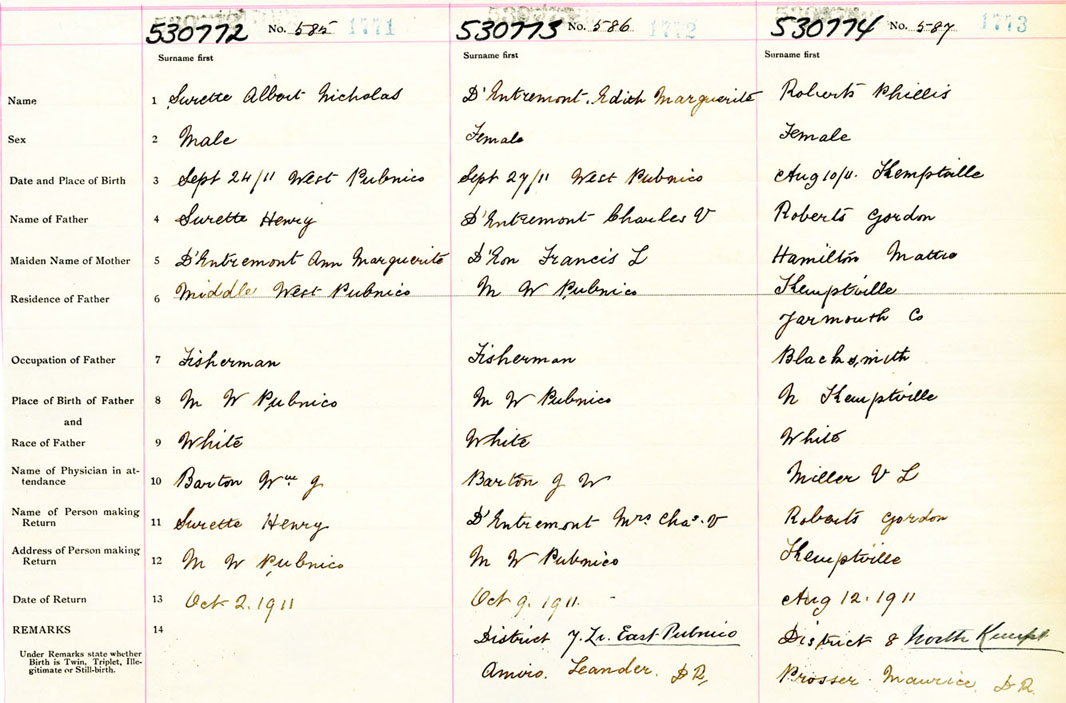 530772 No. 585 1771 530773 No. 586 1772 530774 No. 587 1773
Surname first Surname first Surname first
Name 1 Surette Albert Nicholas D'Entremont. Edith Marguerite Roberts Phillis
Sex 2 Male Female Female
Date and Place of Birth 3 Sept 24/11 West Pubnico Sept 27/11 West Pubnico Aug 10/11. Kemptville
Name of Father 4 Surette Henry D'Entremont Charles V Roberts Gordon
Maiden Name of Mother 5 D'Entremont Ann Marguerite D'Eon Francis L Hamilton
Residence of Father 6 Middle West Pubnico M W Pubnico Kemptville
Yarmouth Co
Occupation of Father 7 Fisherman Fisherman Blacksmith
Place of Birth of Father 8 M W Pubnico M W Pubnico N Kemptville
and
Race of Father 9 White White White
Name of Physician in at-
tendance 10 Barton Wm J Barton J W Miller V L
Name of Person making
Return 11 Surette Henry D'Entremont Mrs Chas. V Roberts Gordon
Address of Person making
Return 12 M W Pubnico M W Pubnico Kemptville
Date of Return 13 Oct 2. 1911 Oct 9. 1911. Aug 12. 1911
REMARKS 14 District 7. East Pubnico District 8 North Kempt
Under Remarks state whether
Birth is Twin, Triplet, Ille-
gitimate or Still-birth.
Amiro. Leander. D R, Prosser. Maurice. D R.